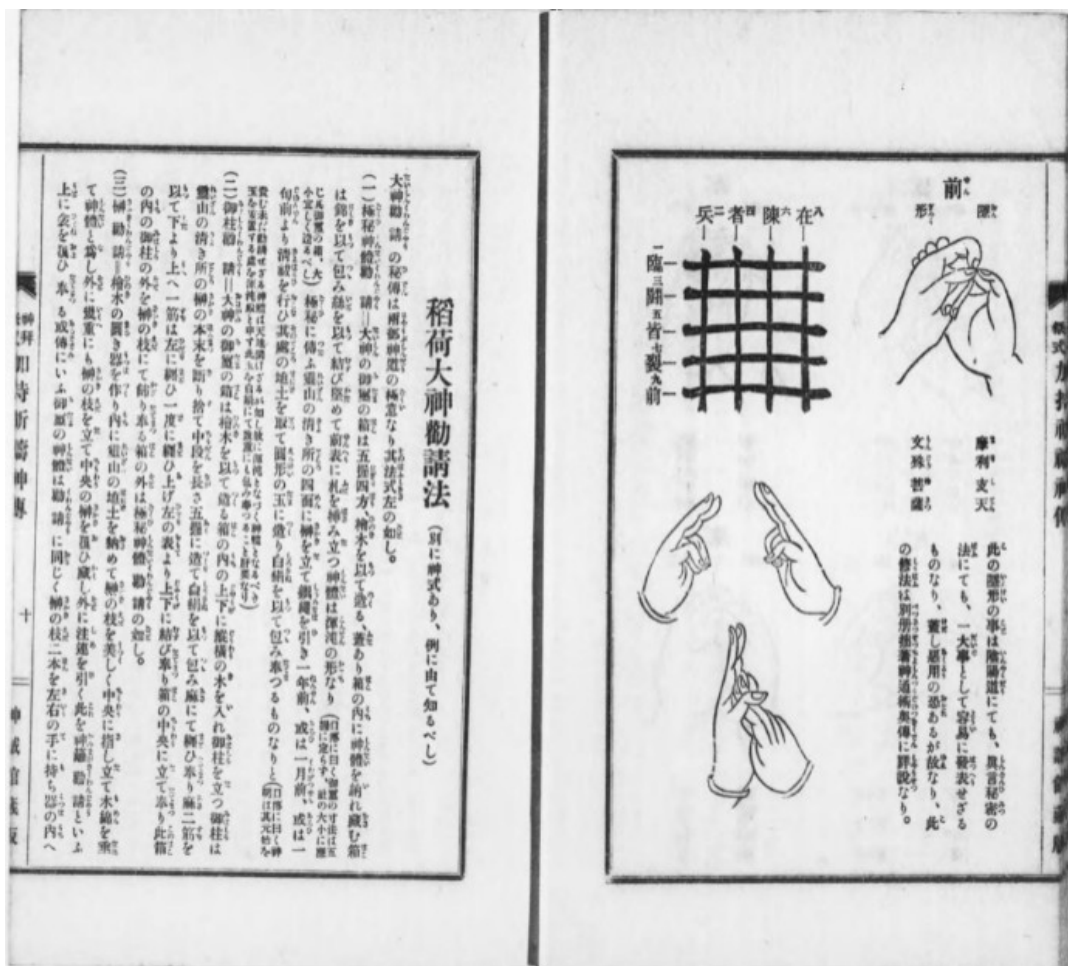 前
隠形
摩利支天
文殊菩薩
兵二 者四 陳六 在八
一臨
三闘
五皆
七裂
九前
此の隠形の事は陰陽道にても、真言秘密の
法にても、一大事として容易に發表せざる
ものなり、蓋し惡用の恐あるが故なり、此
の修法は別册拙著神道術奥傳に詳説なり。
稻荷大神勸請法 (別に神式あり、例に由て知るべし)
大神勸請の秘傳は兩部神道の極意なり其法式左の如し。
(一)極秘神體勸請=大神の御璽の箱は五提四方、檜木を以て造る、蓋あり箱の内に神體を納れ藏む箱
は錦を以て包み絲を以て結び堅めて前表に札を挿み立つ神體は渾沌の形なり
極秘に傳ふ靈山の清き所の四面に榊を立て鎭繩を引き一年前、或は一月前、或は一
旬前より清祓を行ひ其處の地土を取て圓形の玉に造り白絹を以て包み奉つるものなりと
(二)御柱勸請=大神の御璽の箱は檜木を以て造る箱の内の上下に縱横の木を入れ御柱を立つ御柱は
靈山の清き所の榊の本末を斷り捨て中段を長さ五提に造て白絹を以て包み麻にて纏ひ奉り麻二筋を
以て下より上へ一筋は左に纏ひ一度に纏ひ上げ左の表より上下に結び奉り箱の中央に立て奉り此箱
の内の御柱の外を榊の枝にて飾り奉る箱の外は極秘神體勸請の如し。
(三)榊勸請=檜木の圓き器を作り内に靈山の地土を納めて榊の枝を美しく中央に指し立て木綿を垂
て神體と爲し外に幾重にも榊の枝を立て中央の榊を蔽ひ藏し外に注連を引く此を神籬勸請といふ
上に衾を覆ひ奉る或傳にいふ御璽の神體は勸請に同じく榊の枝二本を左右の手に持ち器の内へ
十
神誠館藏版